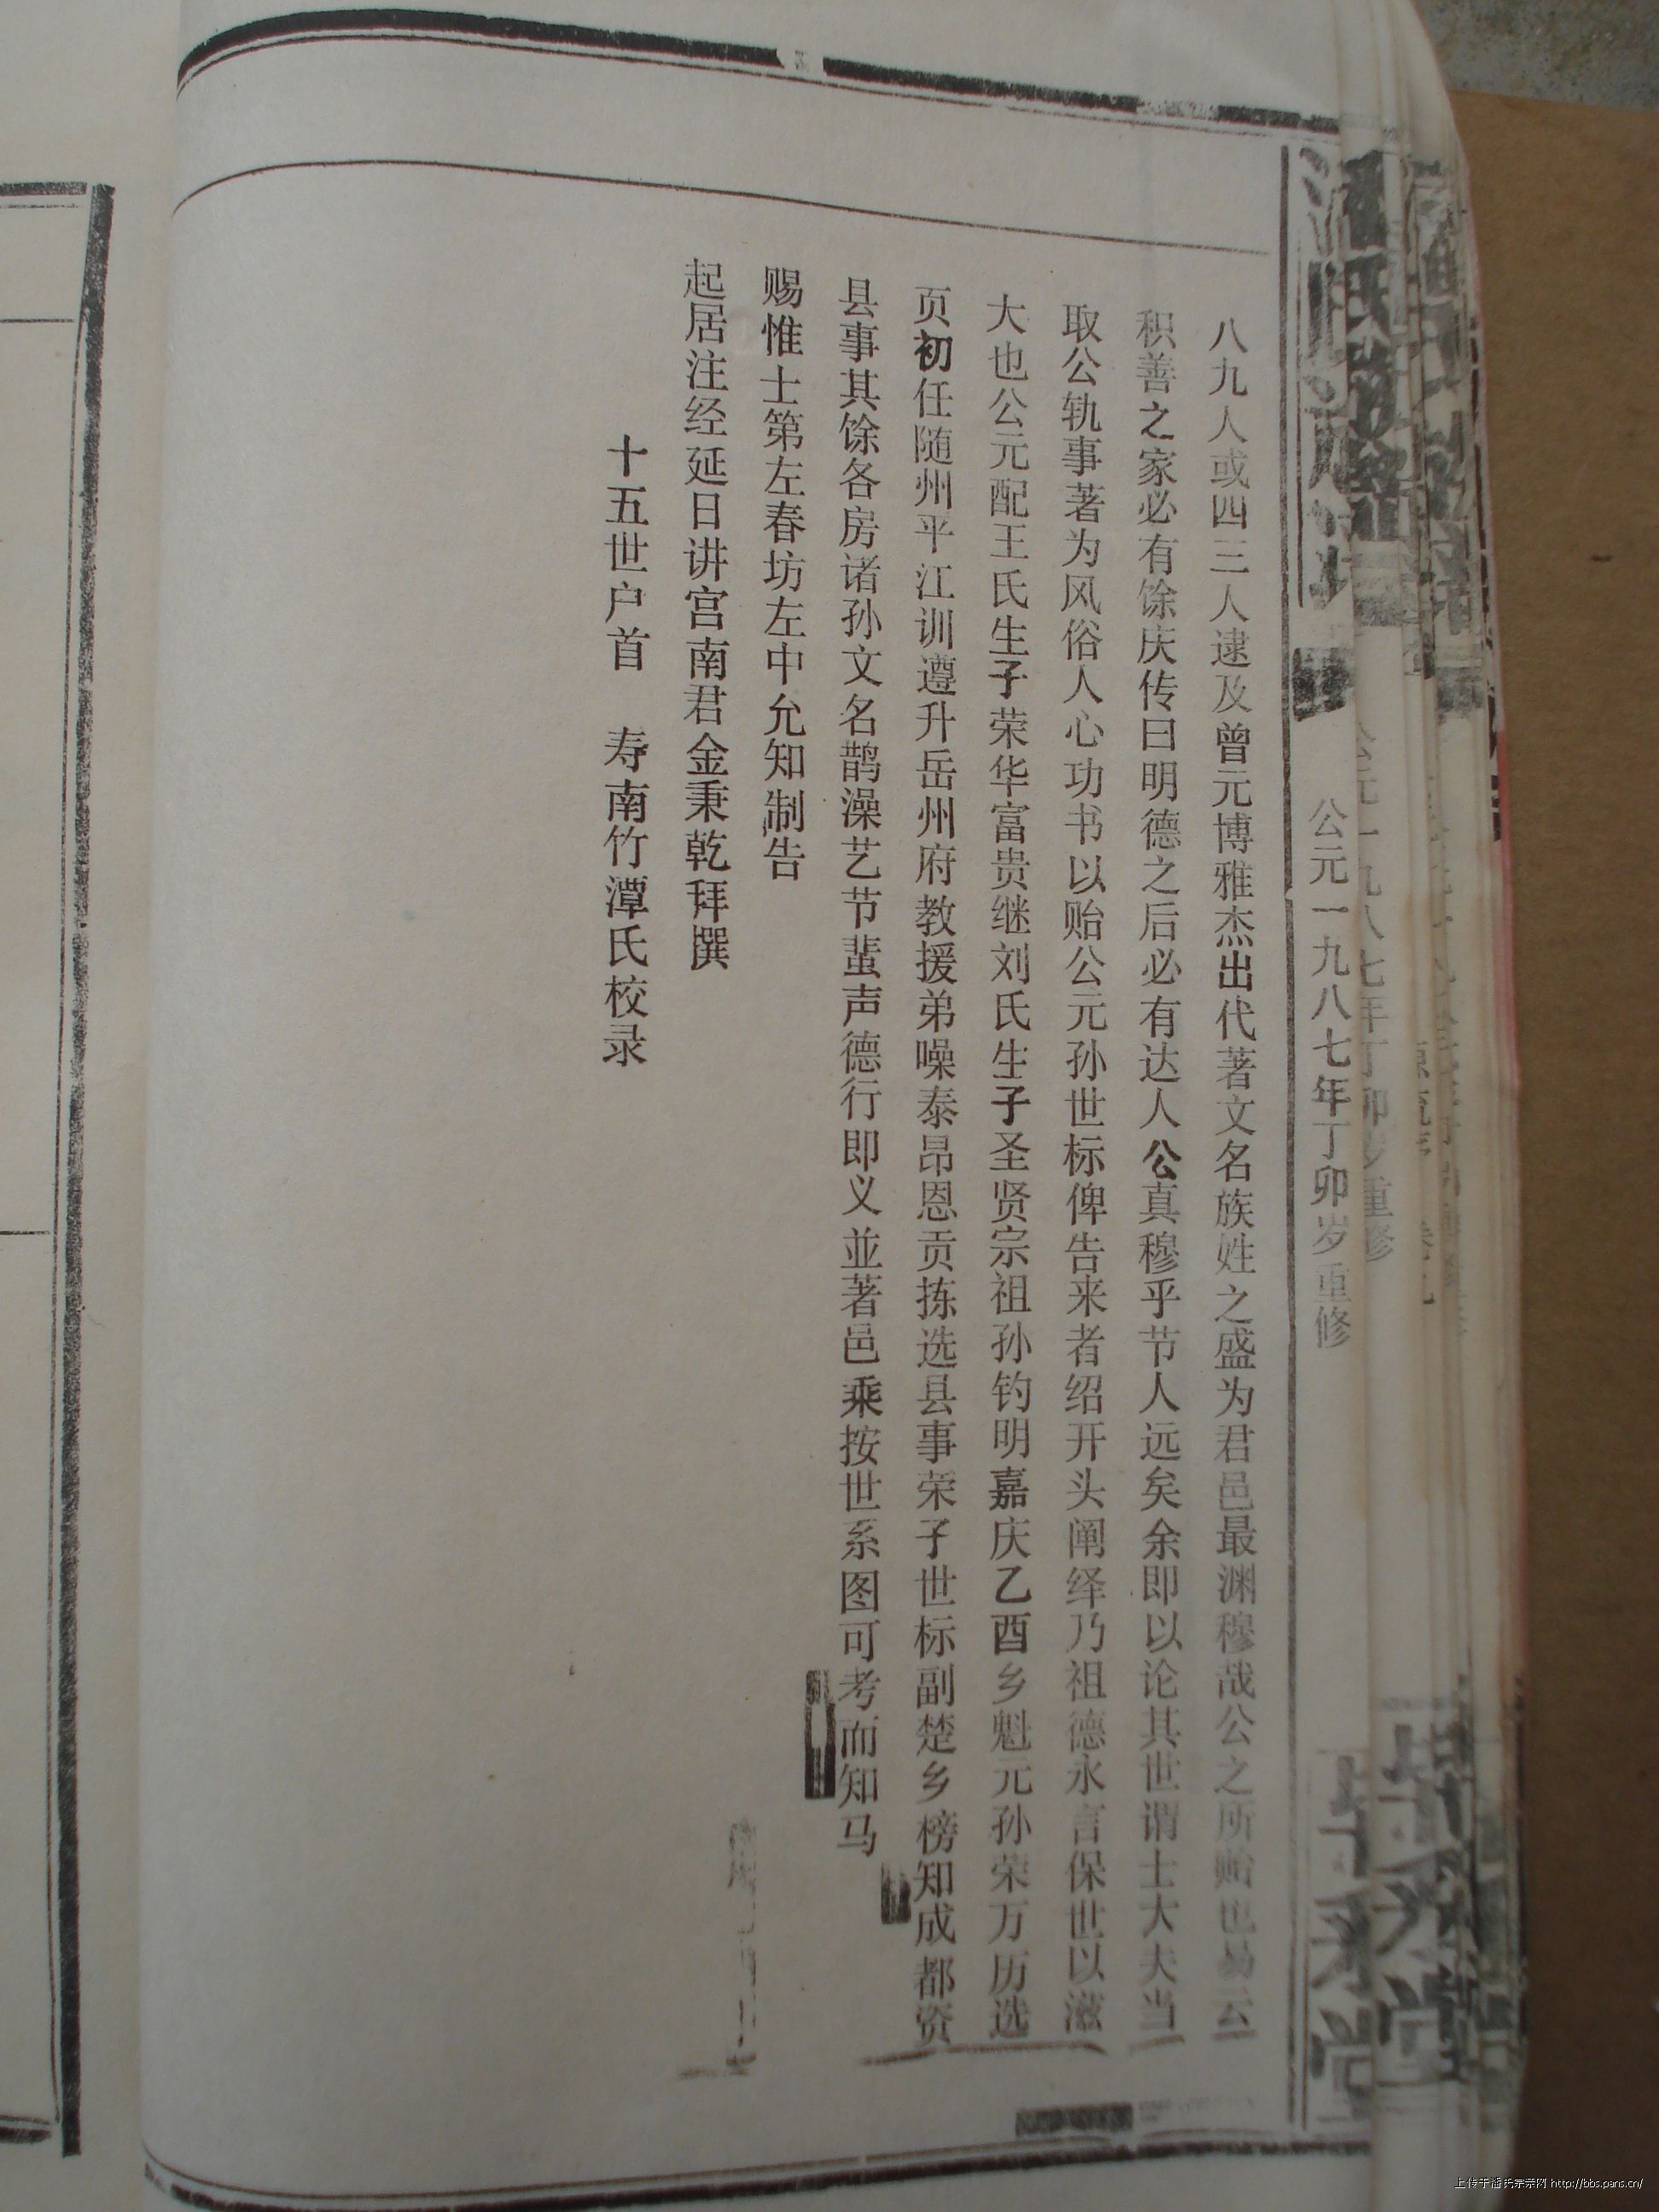 公元一九八七年丁卯岁重修
八九人或四三人逮及曾元博雅杰出代著文名族姓之盛为君邑最渊穆哉公之所贻也易云
积善之家必有馀庆传曰明德之后必有达人公真穆乎节人远矣余即以论其世谓士大夫当
取公轨事著为风俗人心功书以贻公元孙世标俾告来者绍开头阐绎乃祖德永言保世以滋
大也公元配王氏生子荣华富贵继刘氏生子圣贤宗祖孙钓明嘉庆乙酉乡魁元孙荣万历选
页初任随州平江训遵升岳州府教援弟噪泰昂恩贡拣选县事荣子世标副楚乡榜知成都资
县事其馀各房诸孙文名鹊澡艺节蜚声德行即义並著邑乘按世系图可考而知马
赐惟士第左春坊左中允知制告
起居注经延日讲宫南君金秉乾拜撰
十五世户首 寿南竹潭氏校录
上传于潘氏宗亲网 http://bbs.pans.cn/